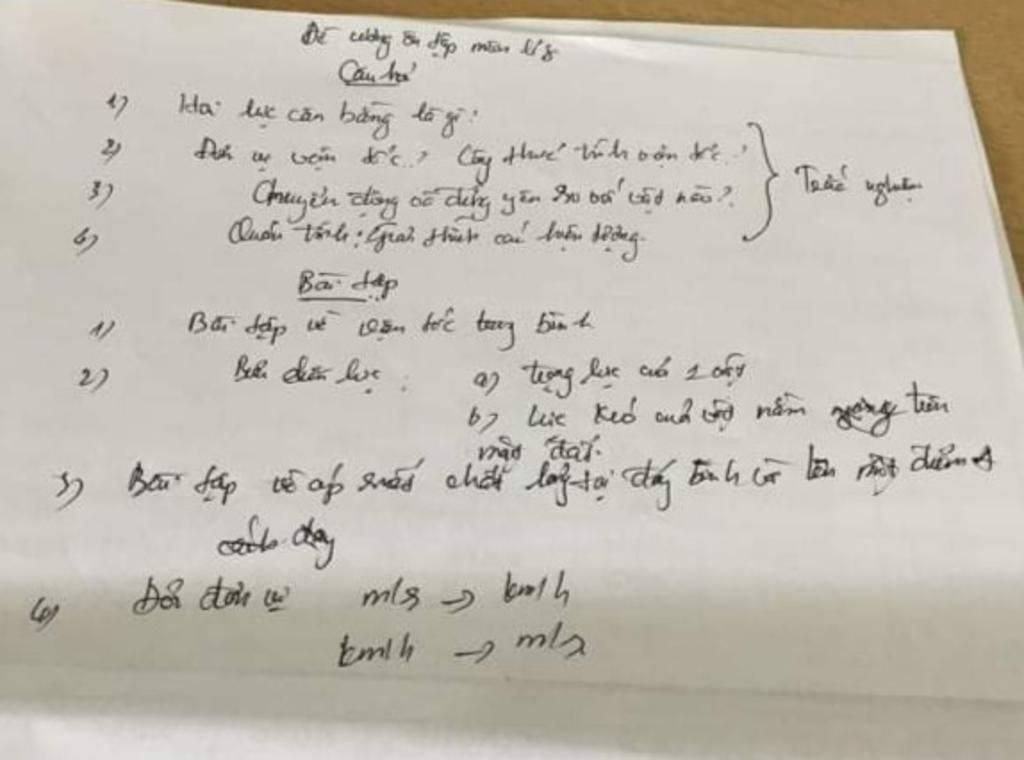 Đề cương ôn tập môn lí 8
Câu hỏi
1) Hai lực cân bằng là gì?
2) Đơn vị vận tốc? Công thức tính vận tốc?
3) Chuyển động và đứng yên so với vật nào?
4) Quán tính: Giải thích các hiện tượng.
Trắc nghiệm
Bài tập
1) Bài tập về vận tốc trung bình
2) Biểu diễn lực: a) trọng lực của 1 vật
b) Lực kéo của vật nằm ngang trên
mặt đất.
3) Bài tập về áp suất chất lỏng tại đáy bình và lên một điểm A
cách đáy
4) Đổi đơn vị m/s → km/h
km/h → m/s